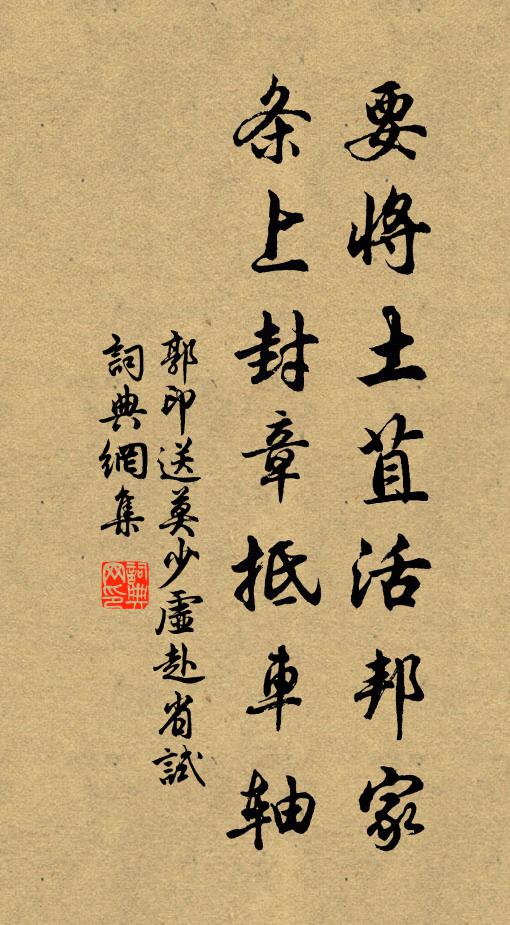 要将土苴活邦家
条上封章抵車轴
郭印送莫少虛赴省試
詞典網集
詞典网印